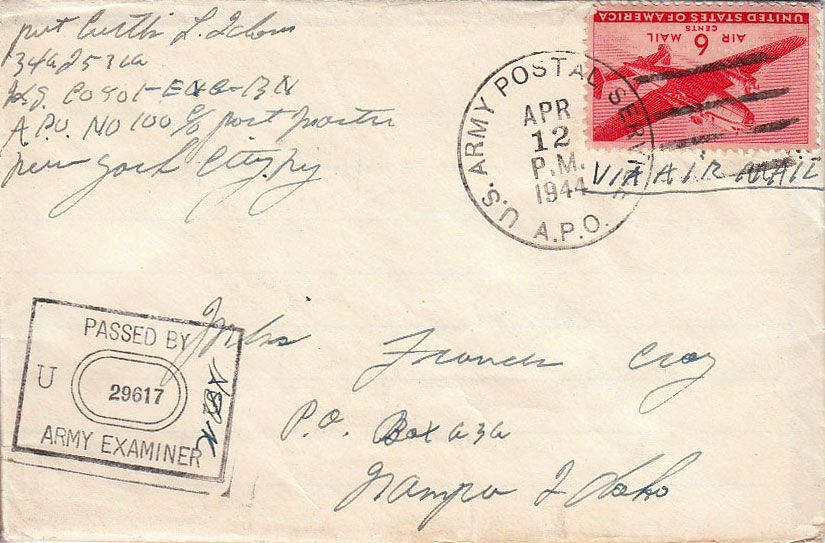 pvt Curtis L.
34625316
Hq. Co 901- -BN
A.P.O. NO 100 c/o post master
new york City, ny
UNITED STATES OF AMERICA
AIR MAIL
6 CENTS
U.S. ARMY POSTAL SERVICE
APR
12
P.M.
1944
A.P.O.
VIA AIR MAIL
PASSED BY
U 29617
ARMY EXAMINER
Miss Frances Cray
P.O. Box 232
Nampa Idaho